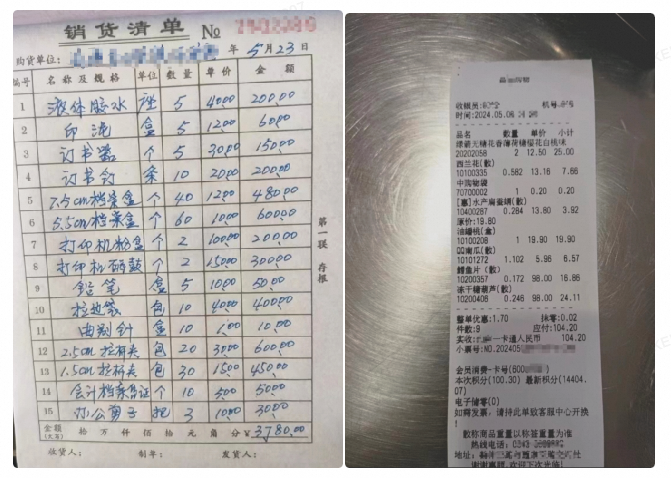 销货清单 No
购货单位： 年 5月23日
编号 名称及规格 单位 数量 单价 金额
1 液体胶水 5 4000 20000
2 印泥 盒 5 1200 6000
3 订书器 个 5 3000 15000
4 订书钉 10 2000 20000
5 7.5cm档案盒 个 40 1200 48000
6 5.5cm档案盒 个 60 1000 60000
7 打印机粉盒 个 2 10000 20000
8 打印机硒鼓 个 2 15000 30000
9 铅笔 盒 5 1000 5000
10 拉边袋 包 10 4000 40000
11 曲别针 盒 10 1.00 10.00
12 2.5cm拉杆夹 包 20 3000 60000
13 1.5cm拉杆夹 包 30 1500 45000
14 会计档案 个 10 500 5000
15 办公剪子 把 3 1000 3000
金额(大写) 拾 万 仟 佰 拾 元 角 分 ¥3780.00
收货人： 制单： 发货人：
第一联 存根
收银员: 机号:
时间:2024.05.06
品名 数量 单价 小计
绿箭无糖花香薄荷糖樱花白桃味
20202058 2 12.50 25.00
西兰花(散)
10100335 0.582 13.16 7.66
中购物袋
70700002 1 0.20 0.20
[惠]水产扁蛋蝴(散)
10400287 0.284 13.80 3.92
原价:19.80
油蟠桃(盒)
10100208 1 19.90 19.90
南瓜(散)
10101272 1.102 5.96 6.57
鳕鱼片(散)
10200357 0.172 98.00 16.86
冻干糖葫芦(散)
10200408 0.246 98.00 24.11
整单优惠:1.70 抹零:0.02
件数:9 应付:104.20
实收: 一卡通人民币 104.20
小票号:NO.202405
会员消费-卡号(600
本次积分(100.30) 最新积分(14404.07)
电子储零(0)
如需发票，请持此单致客服中心开换！
散称商品重量以标签重量为准
热线电话:
地址:
谢谢惠顾,欢迎下次光临!